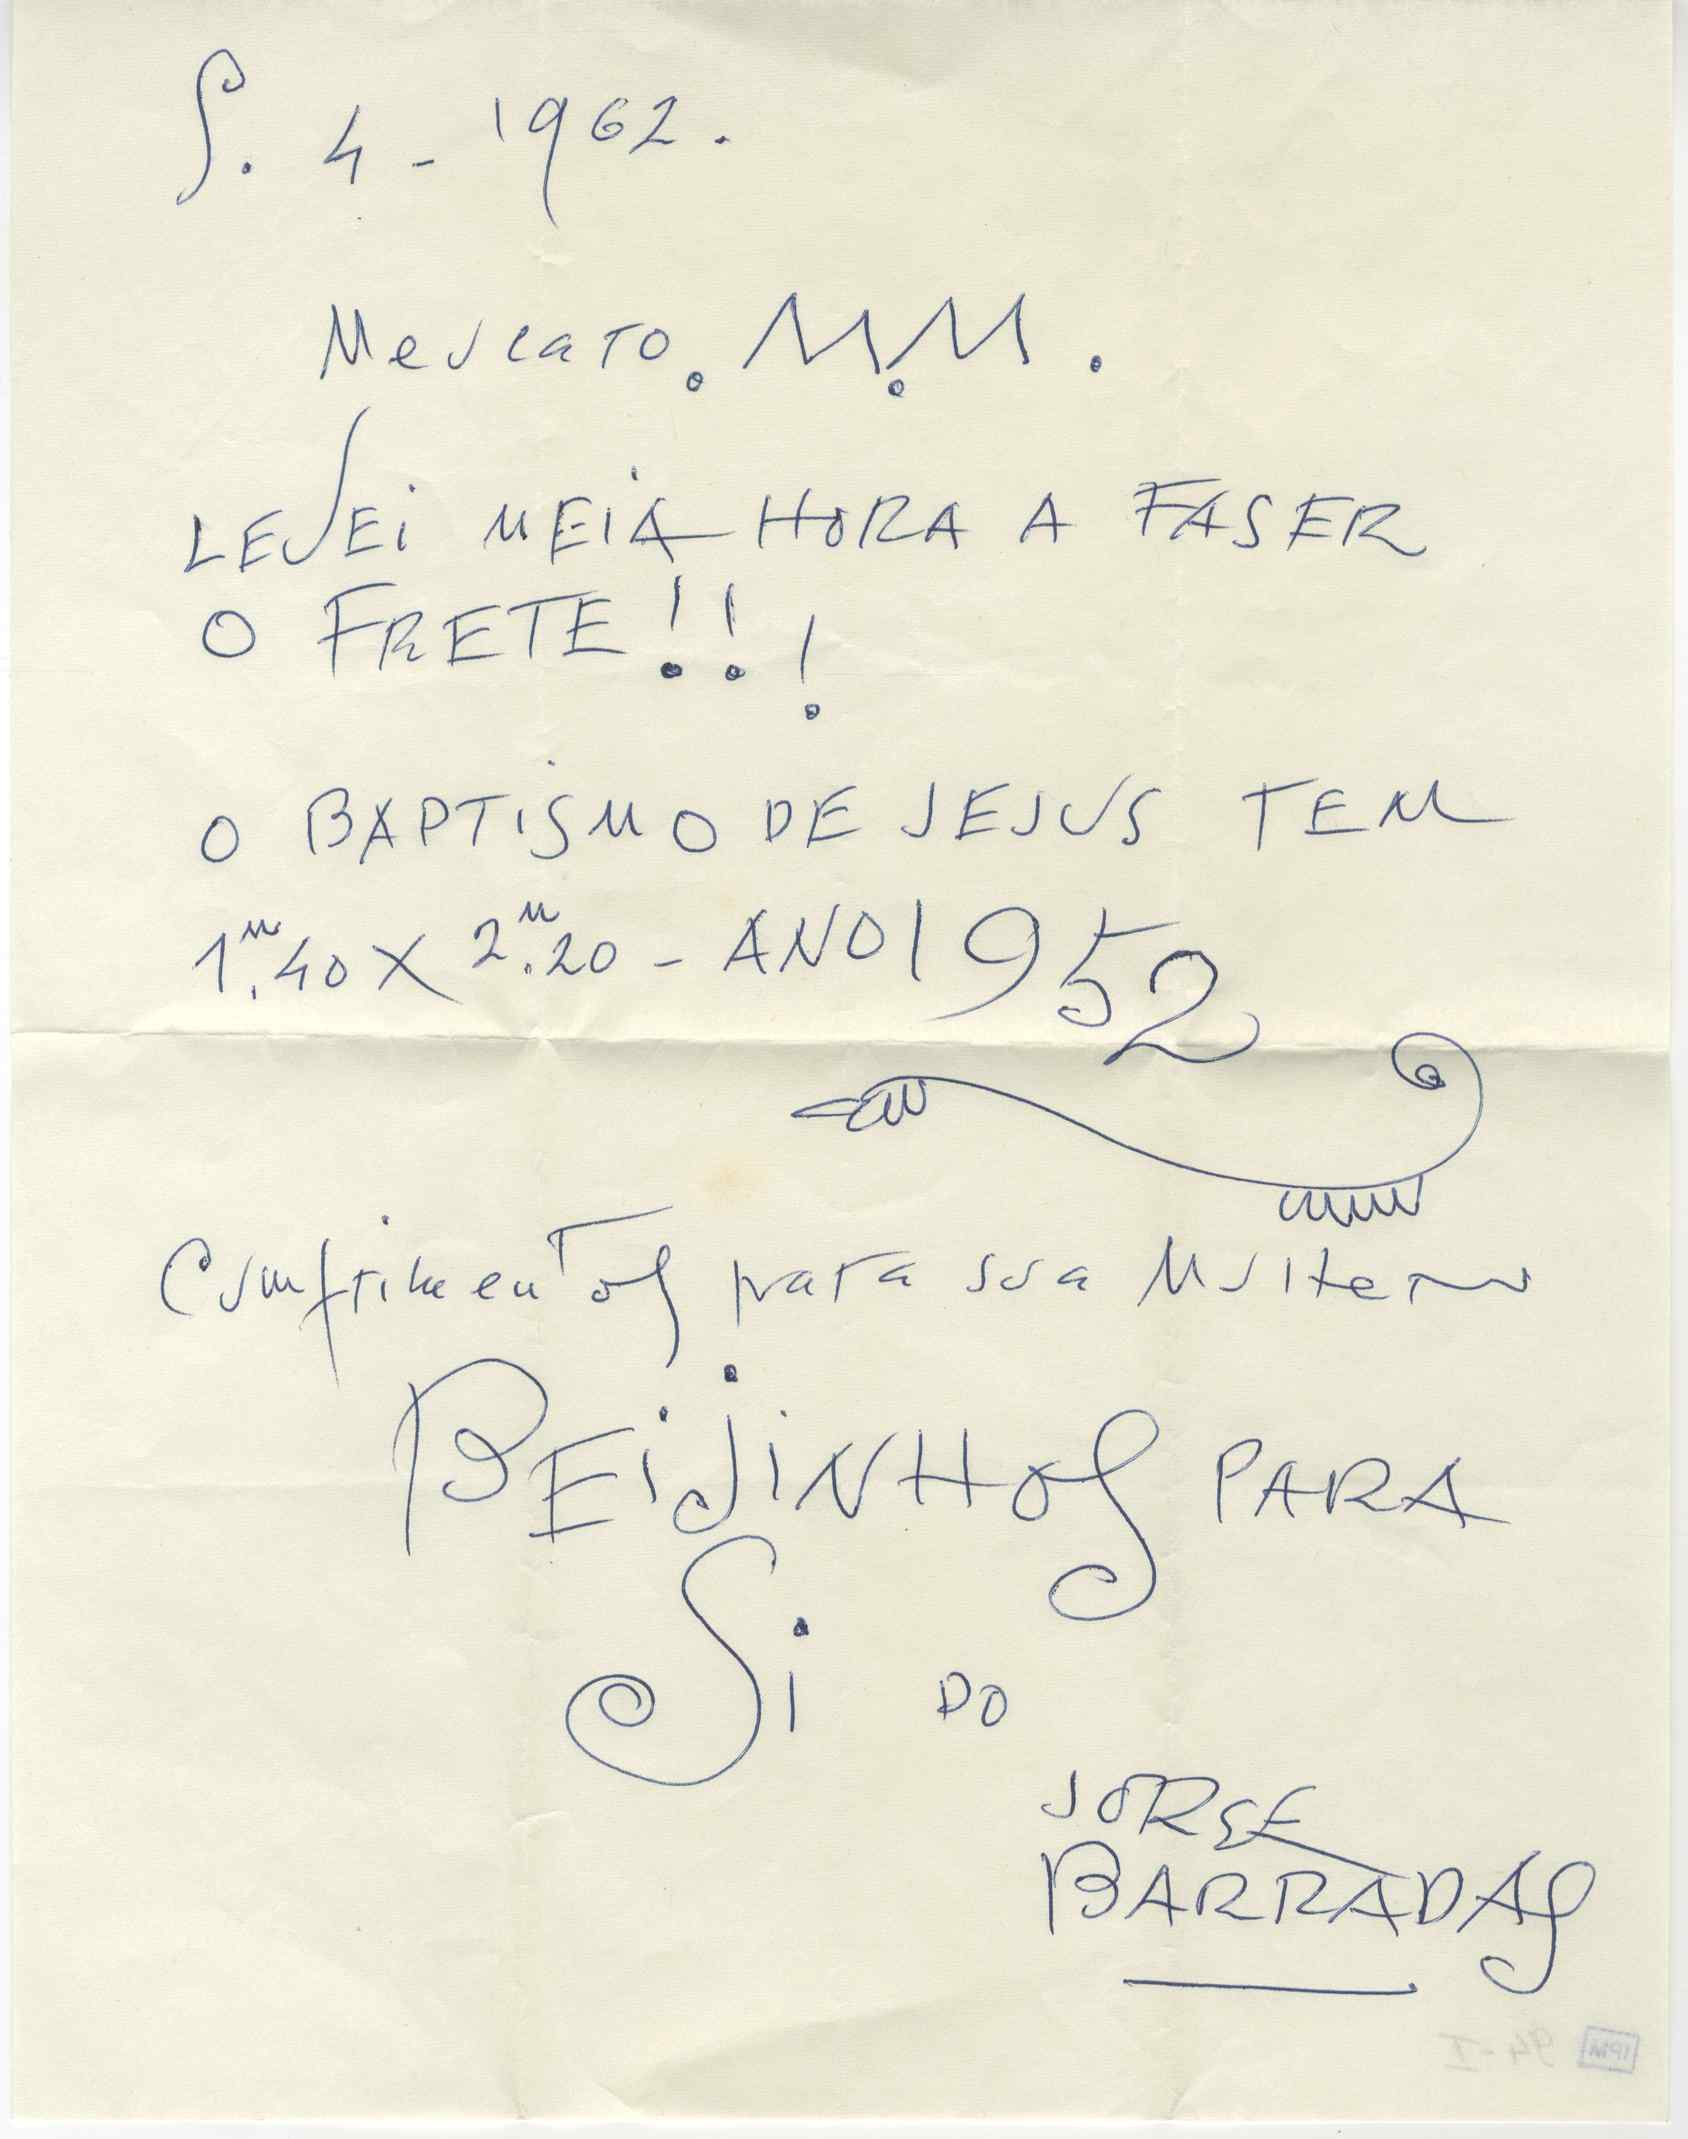 S. 4 - 1962.
Meu caro. M.M.
LEVEI MEIA HORA A FASER
O FRETE!!!
O BAPTISMO DE JESUS TEM
1.ᵐ40 X 2.ᵐ20 - ANO 1952
Cumprimentos para sua Mulher
BEIJINHOS PARA
Si DO
JORGE
BARRADAS
94-I
IPM